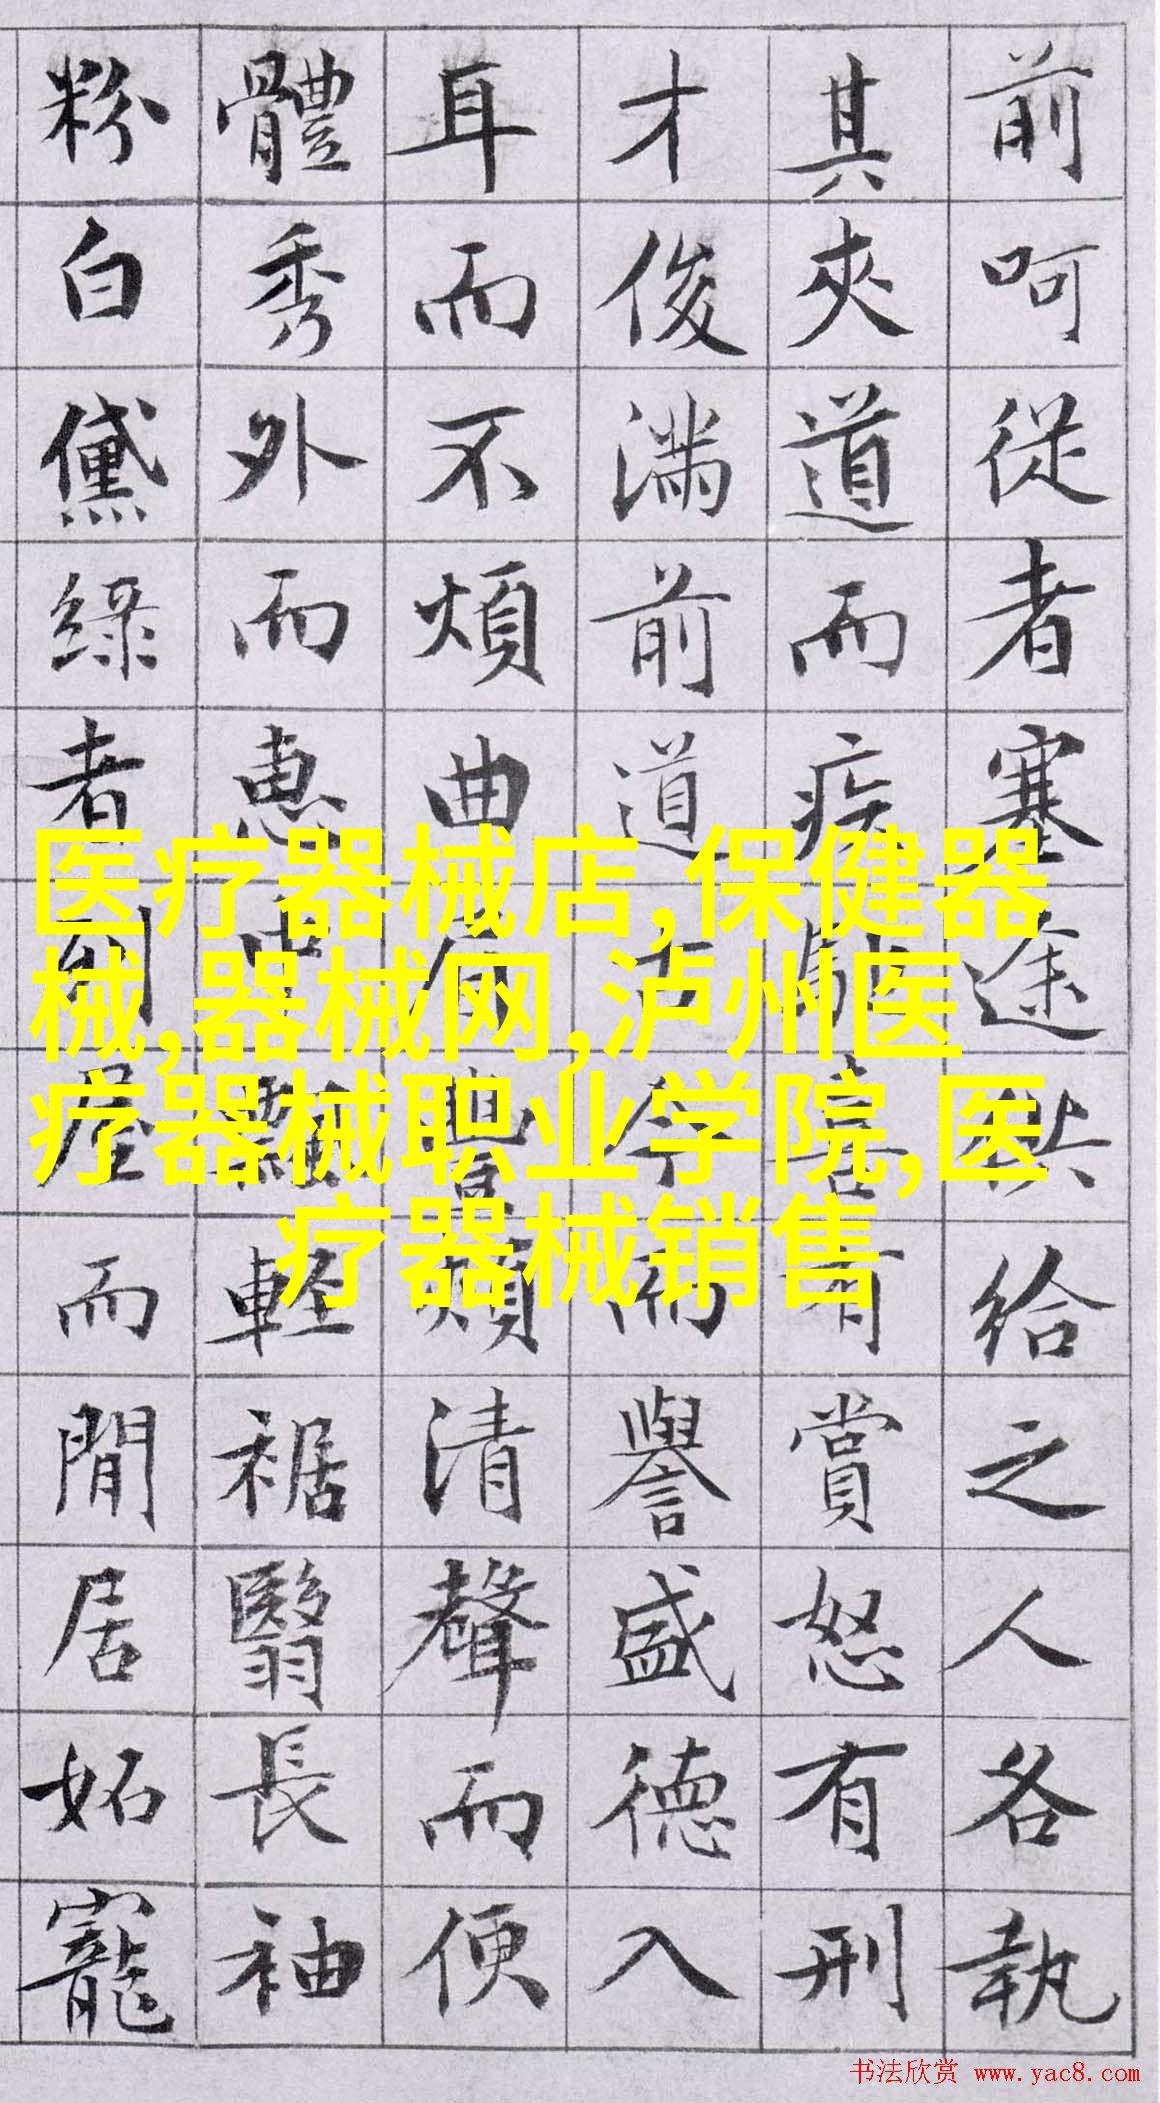 前呵從者塞途供給之人各執
其夾道而疾馳喜有賞怒有刑
才俊满前道古今而譽盛德入
耳而不煩曲眉豐頰清聲而便
體秀外而惠中飄輕裾翳長袖
粉白黛綠者列屋而閒居妬寵
医疗器械店,保健器
械,器械网,泸州医
疗器械职业学院,医
疗器械销售
书法欣赏 www.yac8.com